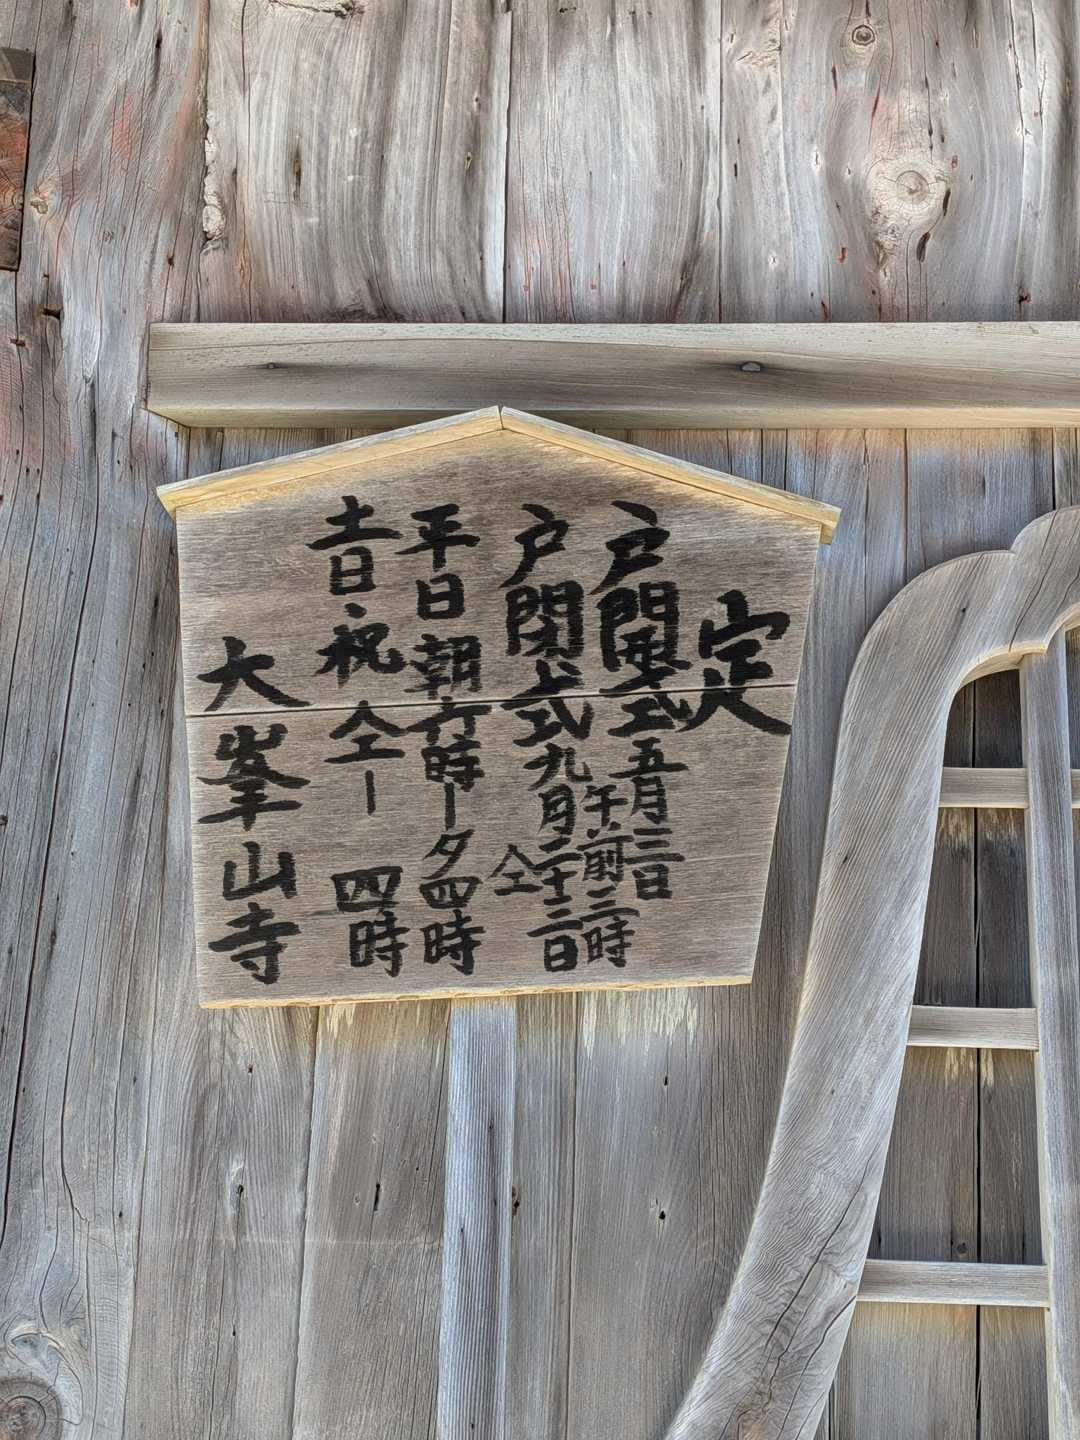 定
戸開式 五月三日
午前三時
戸閉式 九月二十三日
仝
平日 朝六時ー夕四時
土日祝 仝ー 四時
大峯山寺